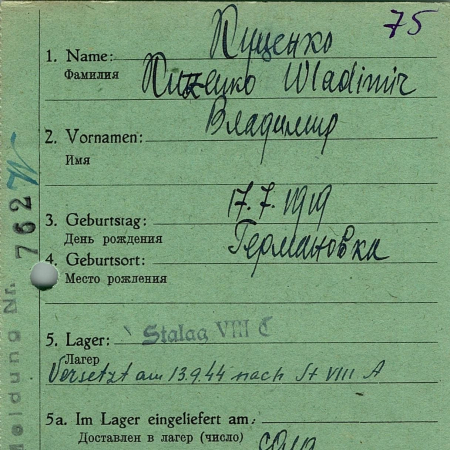 75
Пиценко
1. Name:
Фамилия
Wladimir
Владимир
2. Vornamen:
Имя
17.7.1919
3. Geburtstag:
День рождения
Германовка
4. Geburtsort:
Место рождения
5. Lager: Stalag VIII C
Лагерь
Versetzt am 13.9.44 nach St VIII A
5a. Im Lager eingeliefert am:
Доставлен в лагер (число)
Meldung Nr. 762